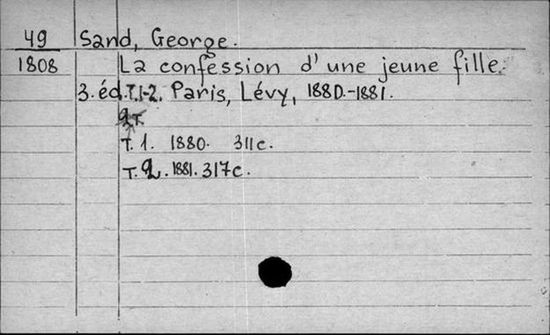 49 Sand, George.
1808 La confession d'une jeune fille.
3. éd. T.1-2. Paris, Lévy, 1880.-1881.
2 т.
T. 1. 1880. 311 c.
T. 2. 1881. 317 c.